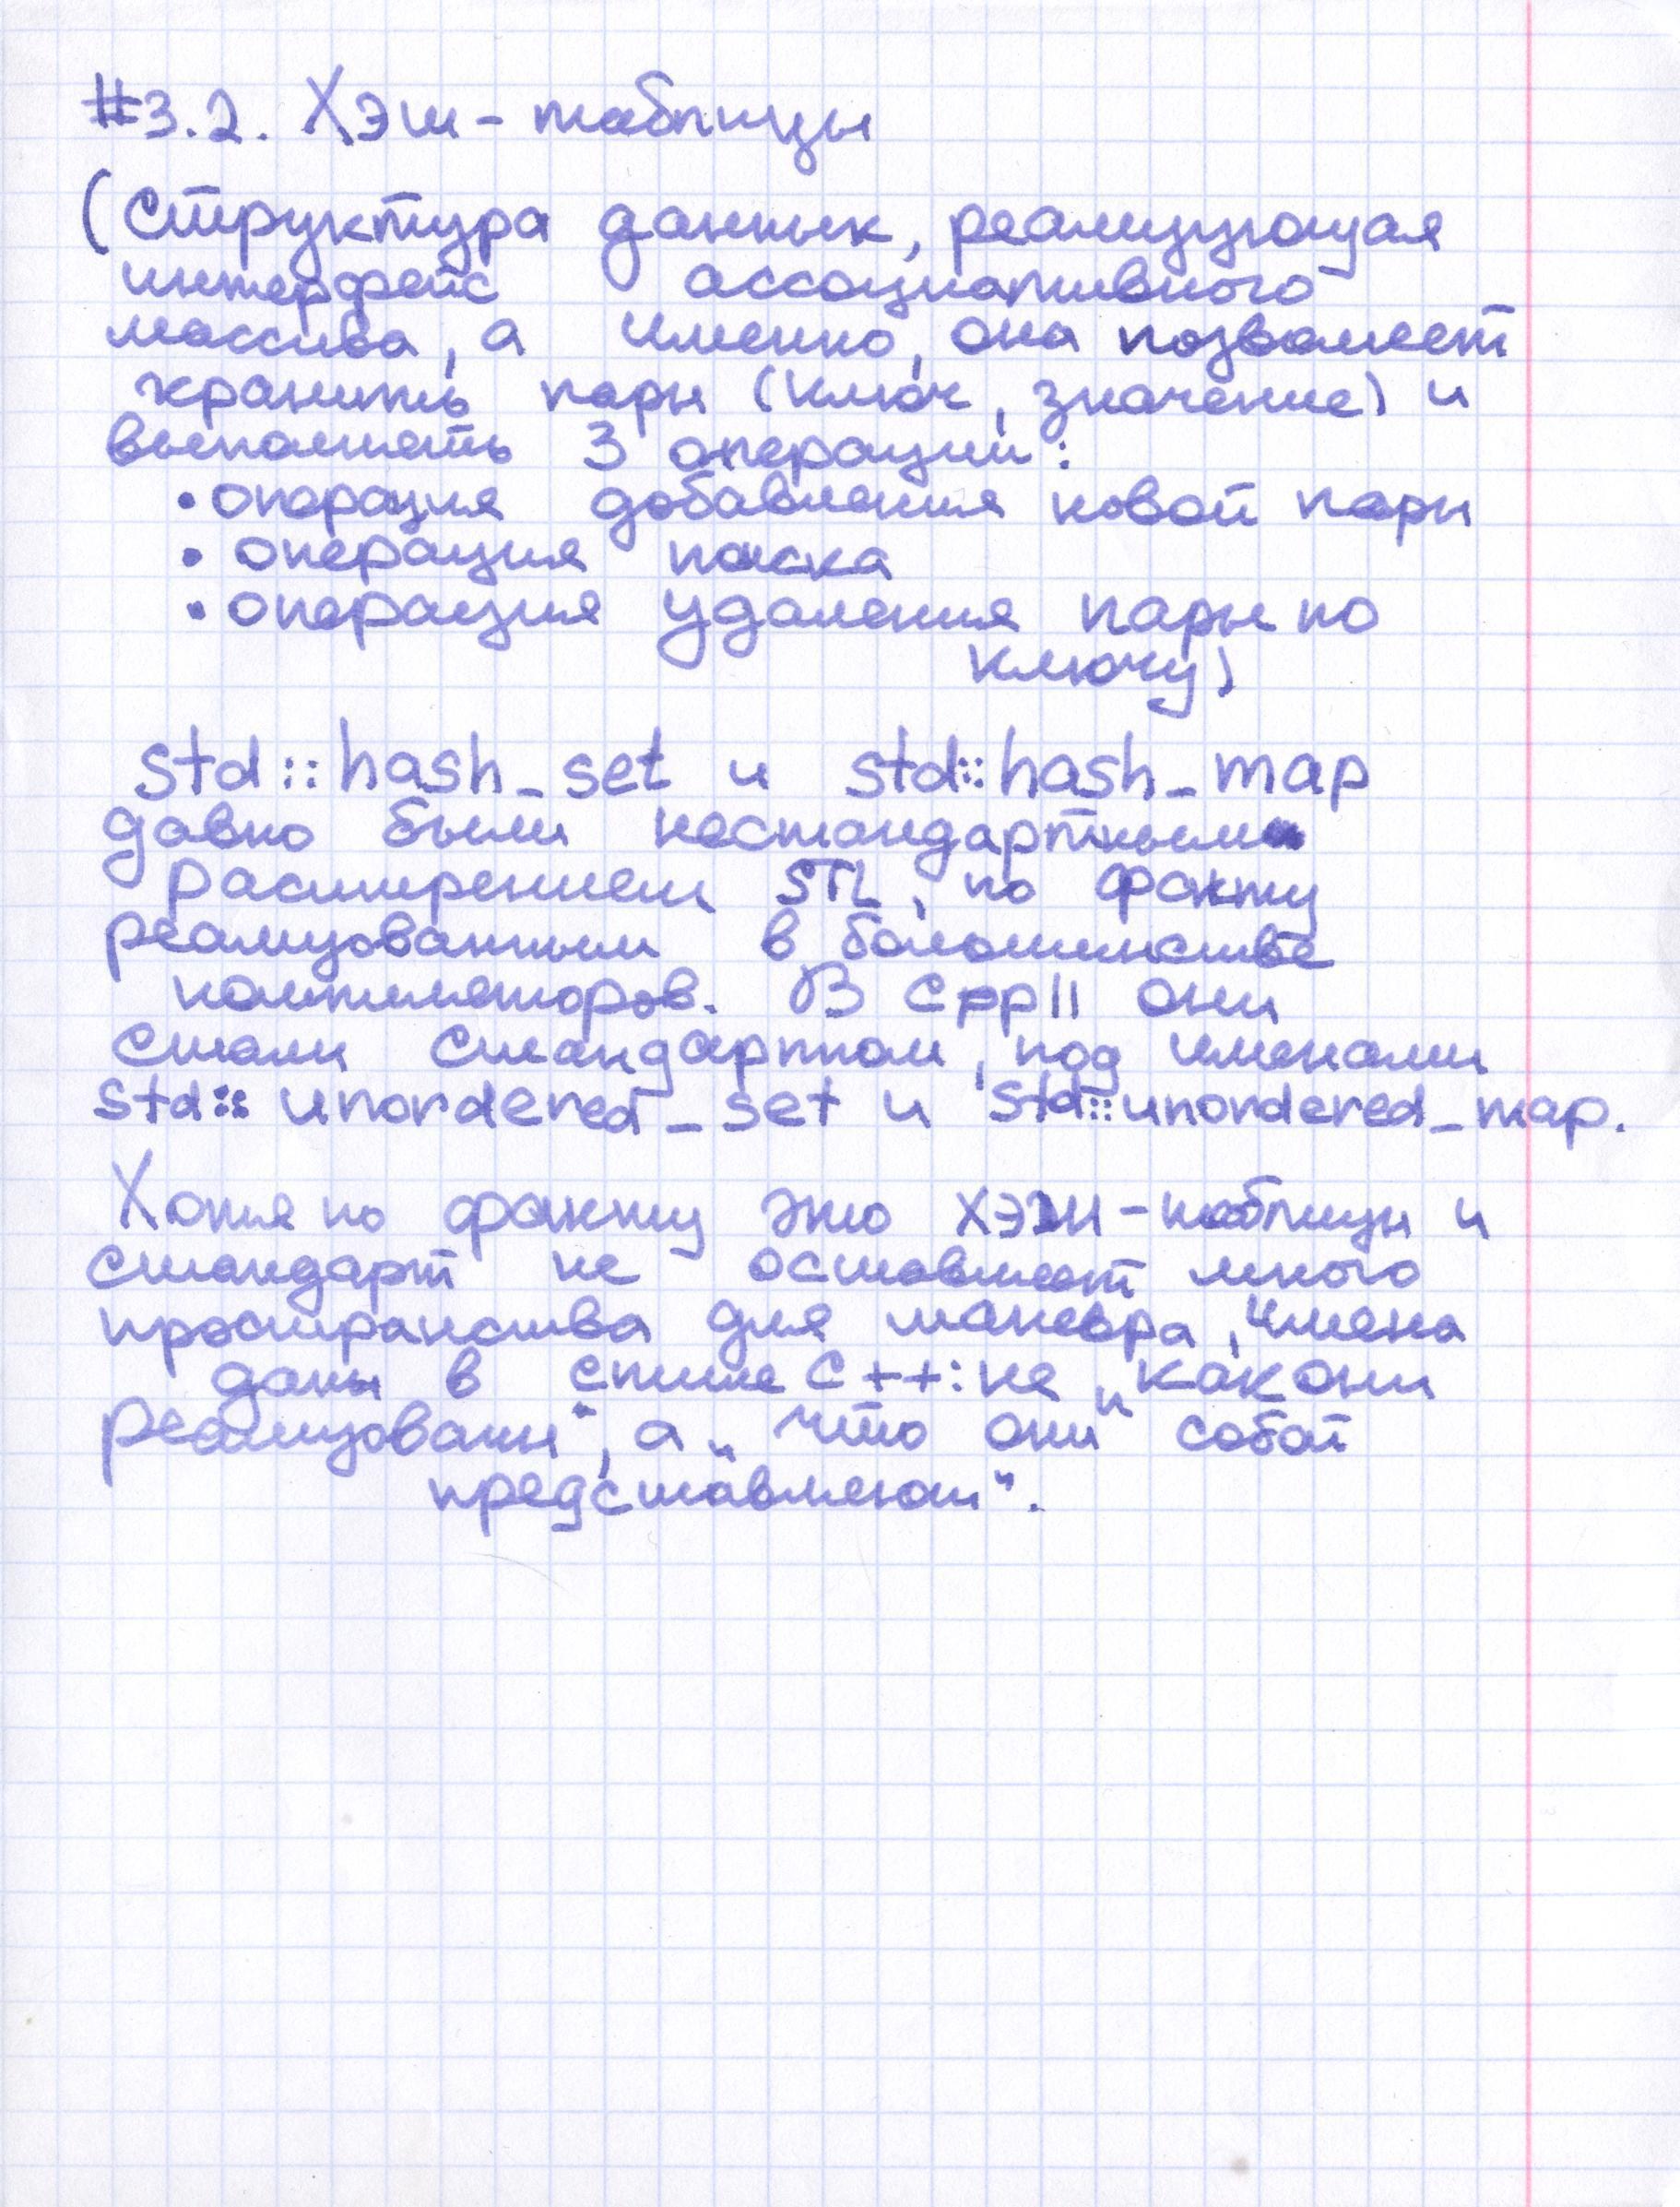 #3.2. Хэш-таблицы
(Структура данных, реализующая
интерфейс ассоциативного
массива, а именно, она позволяет
хранить пары (ключ, значение) и
выполнять 3 операции:
• операция добавления новой пары
• операция поиска
• операция удаления пары по
ключу)
std::hash_set и std::hash_map
давно были нестандартным
расширением STL, по факту
реализованным в большинстве
компиляторов. В cpp11 они
стали стандартом, под именами
std::unordered_set и std::unordered_map.
Хотя по факту это хэш-таблицы и
стандарт не оставляет много
пространства для маневра, имена
даны в стиле C++: не "как они
реализованы", а "что они собой
представляют".